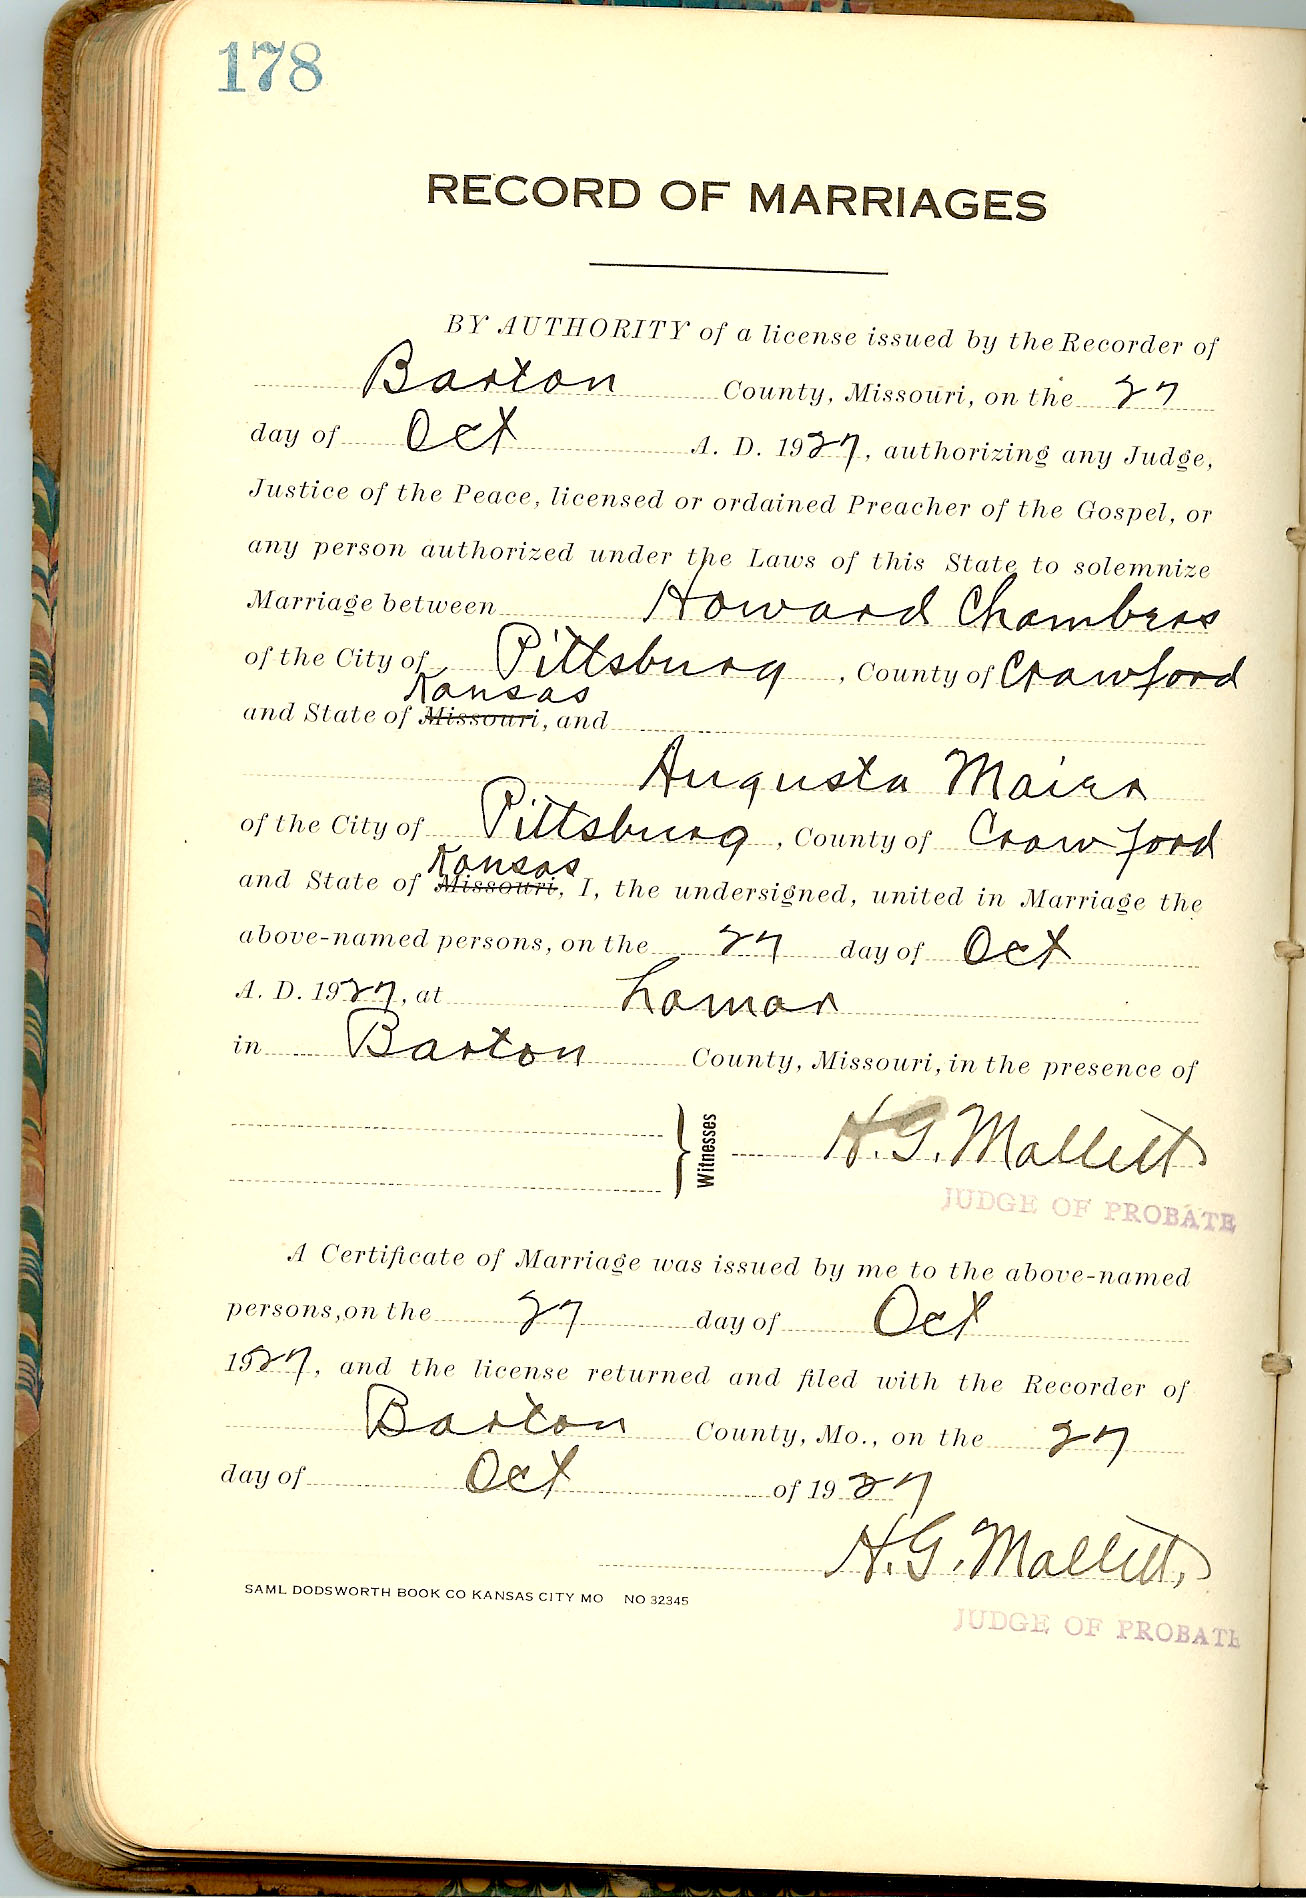 178
RECORD OF MARRIAGES
BY AUTHORITY of a license issued by the Recorder of
Barton County, Missouri, on the 27
day of Oct A. D. 1927, authorizing any Judge,
Justice of the Peace, licensed or ordained Preacher of the Gospel, or
any person authorized under the Laws of this State to solemnize
Marriage between Howard Chambers
of the City of Pittsburg, County of Crawford
Kansas
and State of Missouri, and
Augusta Mairs
of the City of Pittsburg, County of Crawford
Kansas
and State of Missouri, I, the undersigned, united in Marriage the
above-named persons, on the 27 day of Oct
A. D. 1927, at Lamar
in Barton County, Missouri, in the presence of
Witnesses H. G. Mallett
JUDGE OF PROBATE
A Certificate of Marriage was issued by me to the above-named
persons, on the 27 day of Oct
1927, and the license returned and filed with the Recorder of
Barton County, Mo., on the 27
day of Oct of 1927
H. G. Mallett,
SAML DODSWORTH BOOK CO KANSAS CITY MO NO 32345
JUDGE OF PROBATE